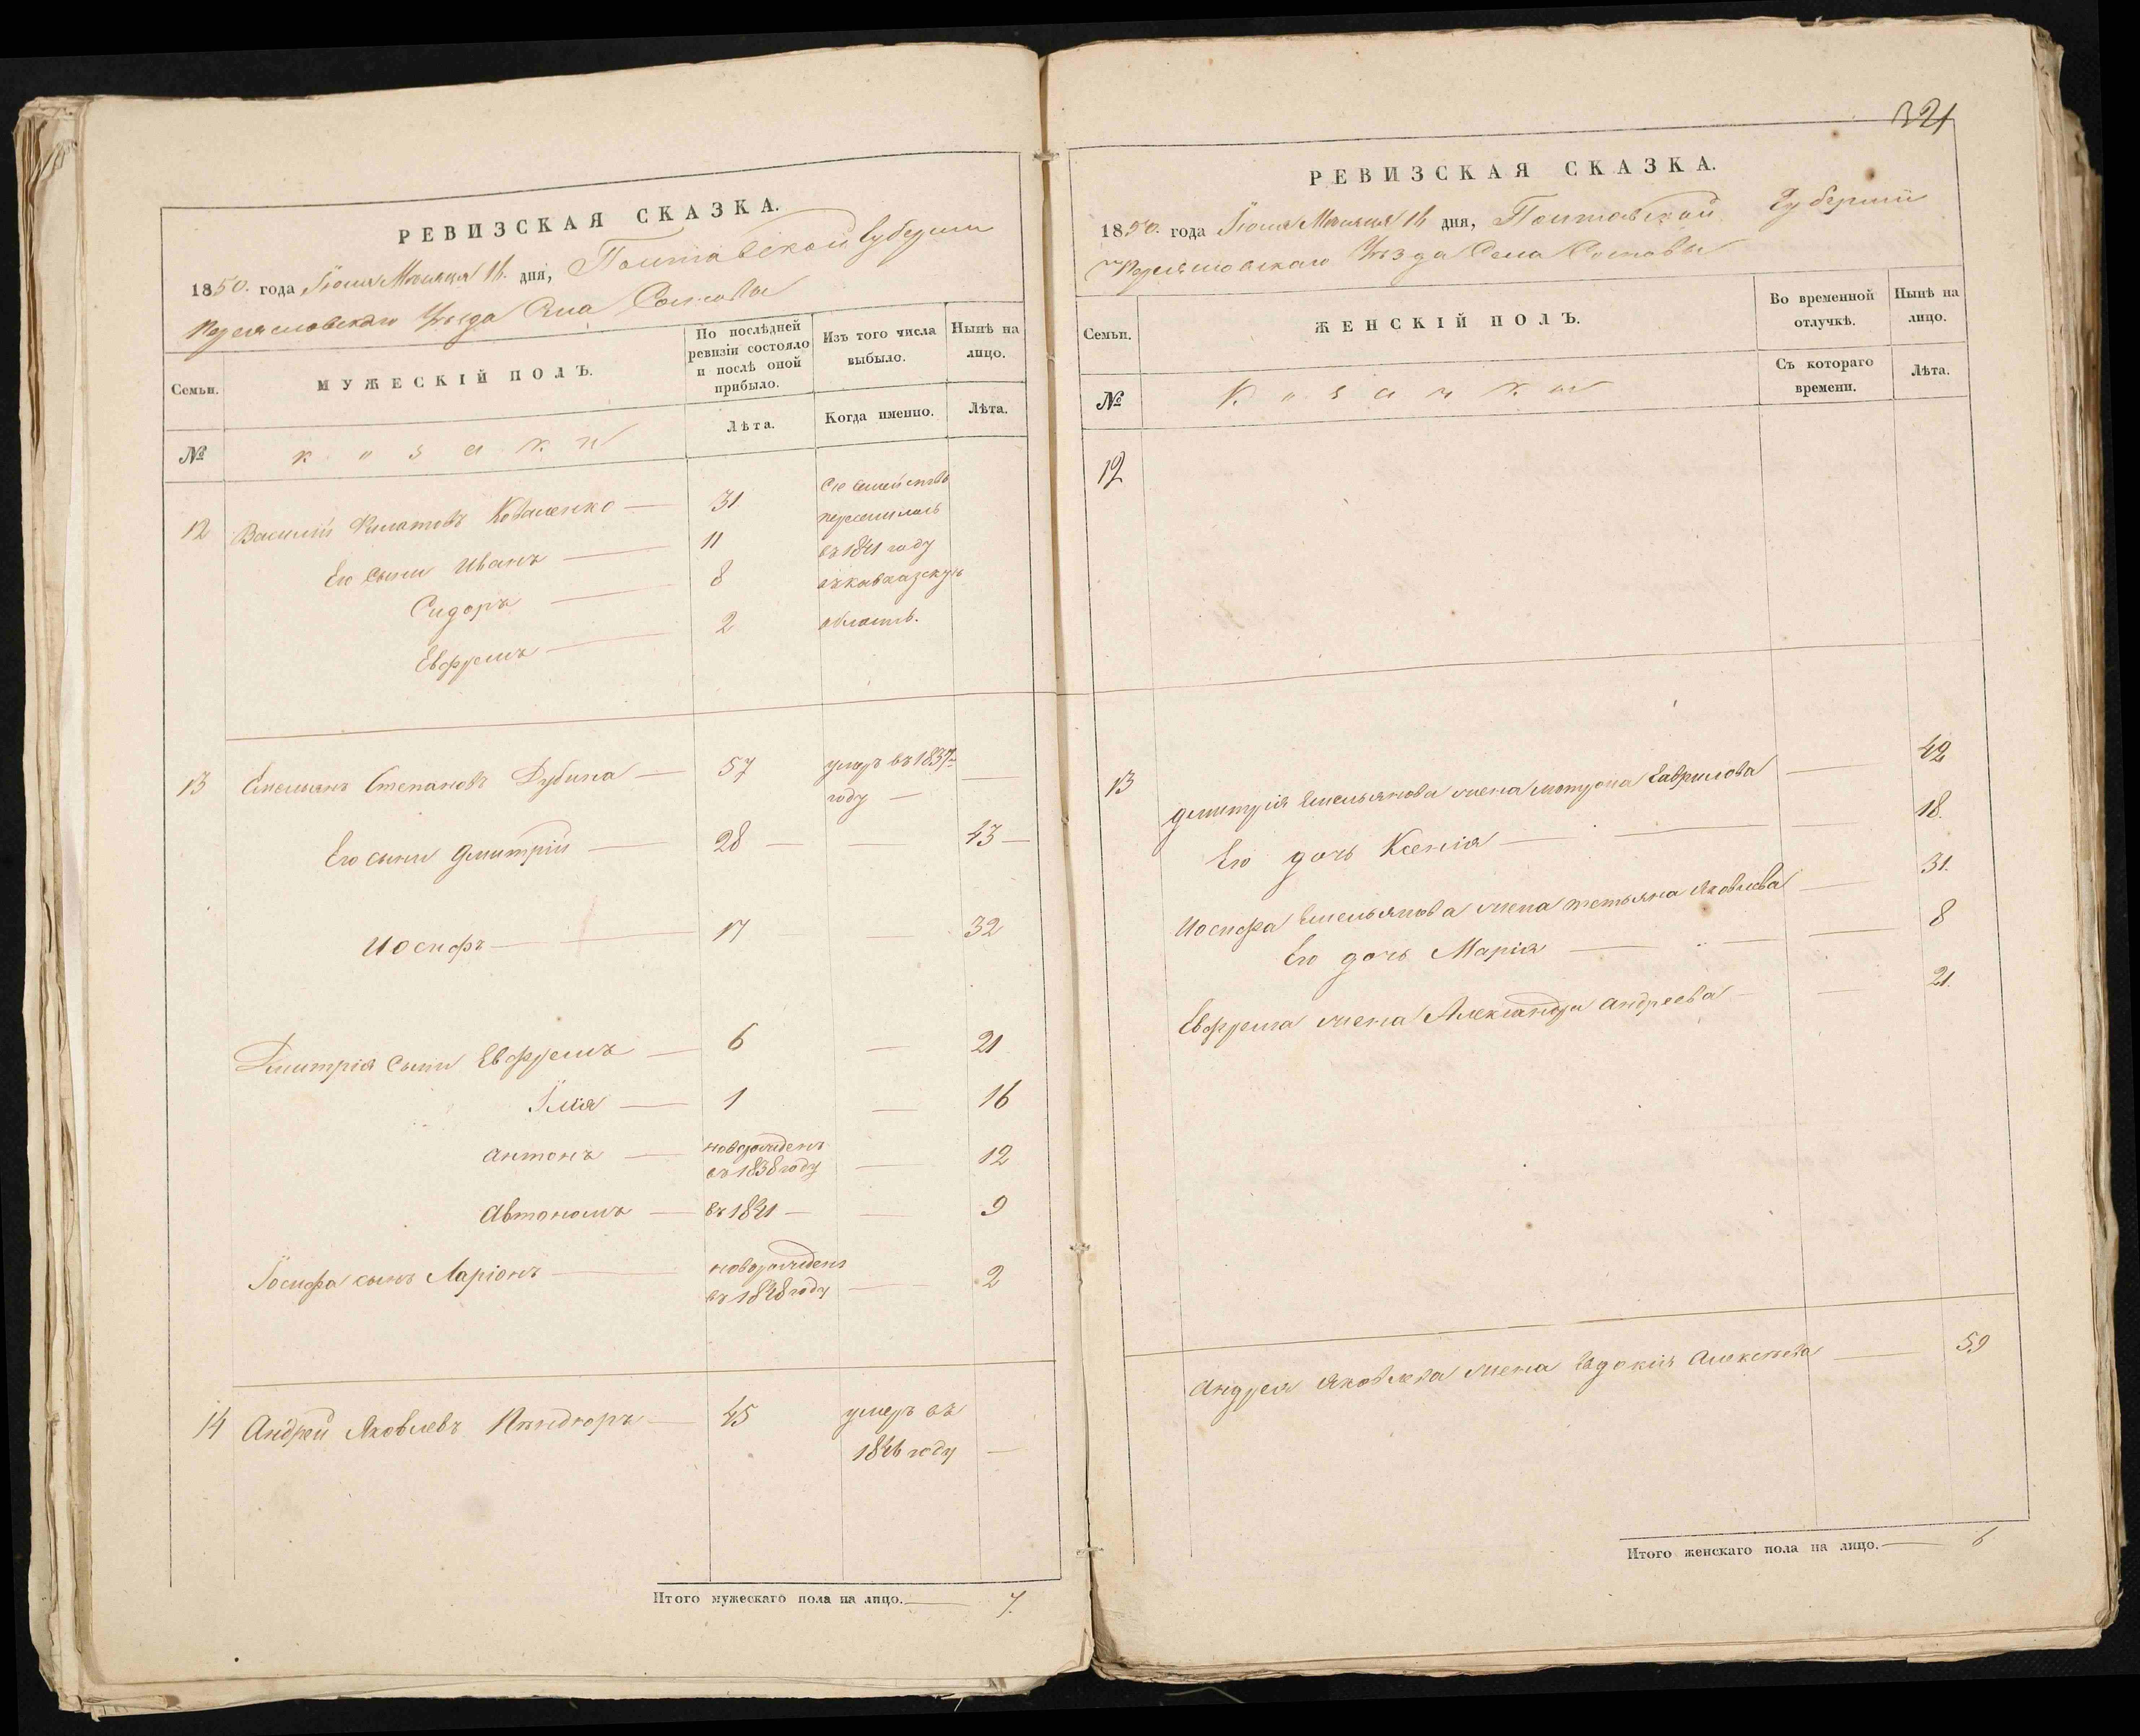 РЕВИЗСКАЯ СКАЗКА.
1850. года Іюня Месяца 16. дня, Полтавской Губернии
Переяславского Уезда Села Сомовки
Семьи.
МУЖЕСКІЙ ПОЛЪ.
По послѣдней ревизіи состояло и послѣ оной прибыло.
Изъ того числа выбыло.
Нынѣ на лицо.
№
козаки
Лѣта.
Когда именно.
Лѣта.
12 Василий Филатовъ Коваленко — 31 Сіе семейство
Его сыни Иванъ — 11 переселилось
въ 1841 году
Сидоръ — 8 въ кавказскую
Евфремъ — 2 область.
13 Емельянъ Степановъ Дубина — 57 умеръ въ 1837
году —
Его сыни Дмитрій — 28 — — 43 —
Иосифъ — 17 — 32
Дмитрія сыни Евфремъ — 6 — 21
Ілія — 1 — 16
Антонъ — новорожденъ
въ 1838 году — 12
Автономъ — въ 1841 — — 9
Іосифа сынъ Ларіонъ — новорожденъ
въ 1848 году — 2
14 Андрей Яковлевъ — 45 умеръ въ
1846 году —
Итого мужескаго пола на лицо. — 7.
321
РЕВИЗСКАЯ СКАЗКА.
1850. года Іюня Месяца 16 дня, Полтавской Губернии
Переяславского Уезда Села
Семьи.
ЖЕНСКІЙ ПОЛЪ.
Во временной отлучкѣ.
Нынѣ на лицо.
№
Козачки
Съ котораго времени.
Лѣта.
12
13 Дмитрія Емельянова жена Мотрона Гаврилова — 42
Его дочь Ксенія — — — 18.
Иосифа Емельянова жена Тетьяна Яковлева — 31.
Его дочь Марія — — — 8
Евфрема жена Александра Андреева — — 21.
Андрея Яковлева жена Евдокія Алексеева — 59
Итого женскаго пола на лицо. — 6